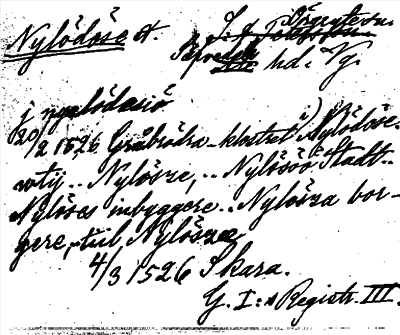 Nylödöse st.
Sävedals hd. Vg.
j nyalödasiö
20/2 1526 Gråbrödra-klostret i Nylödöse.
Nylösze, .. Nylösöö Stadt..
Nylöses inbyggere .. Nylösza bor-
gere, till Nylösze
4/3 1526 Skara.
G. I:s Registr. III.